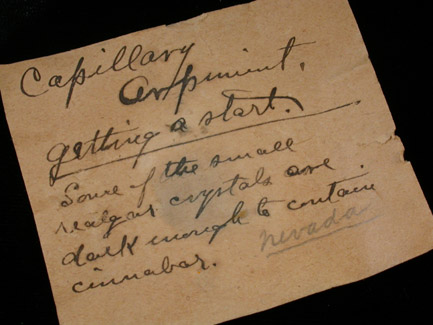 Capillary
Orpiment,
getting a start.
Some of the small
realgar crystals are
dark enough to contain
cinnabar.
Nevada